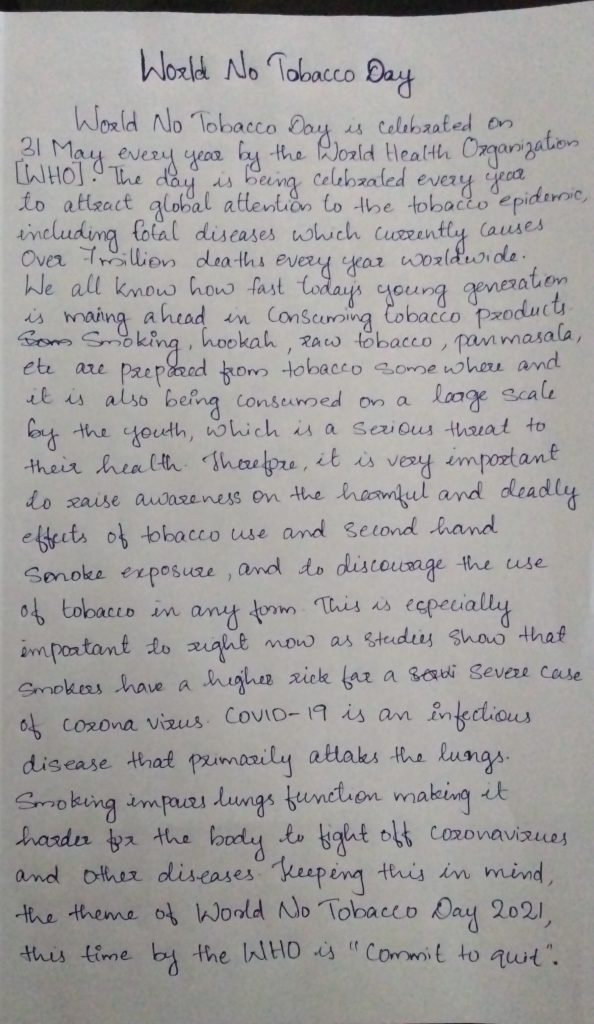 World No Tobacco Day
World No Tobacco Day is celebrated on
31 May every year by the World Health Organization
[WHO]. The day is being celebrated every year
to attract global attention to the tobacco epidemic,
including fotal diseases which currently causes
Over 7 million deaths every year worldwide.
We all know how fast today's young generation
is maing ahead in Consuming tobacco products.
Som Smoking, hookah, raw tobacco, panmasala,
etc are prepared from tobacco somewhere and
it is also being consumed on a large scale
by the youth, which is a serious threat to
their health. Therefore, it is very important
to raise awareness on the harmful and deadly
effects of tobacco use and second hand
Smoke exposure, and to discourage the use
of tobacco in any form. This is especially
important to right now as studies show that
smokers have a higher rick far a Serdi Severe case
of corona virus. COVID-19 is an infectious
disease that primarily attaks the lungs.
Smoking impaurs lungs function making it
harder for the body to fight off coronavirues
and other diseases. Keeping this in mind,
the theme of World No Tobacco Day 2021,
this time by the WHO is "Commit to quit".